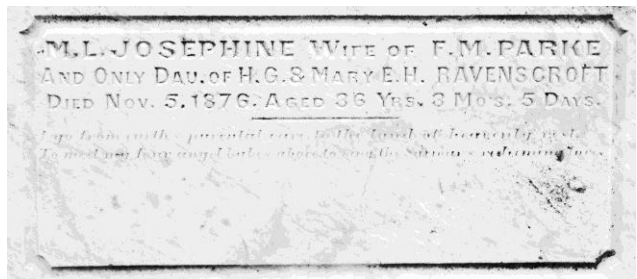 M.L. JOSEPHINE WIFE OF F.M. PARKE
AND ONLY DAU. OF H.G. & MARY E.H. RAVENSCROFT
DIED NOV. 5, 1876. AGED 36 YRS. 3 MO'S. 5 DAYS.
I go from earth's parental care, to the land of heavenly rest.
To meet my four angel babes above to sing the Saviour's redeeming love.